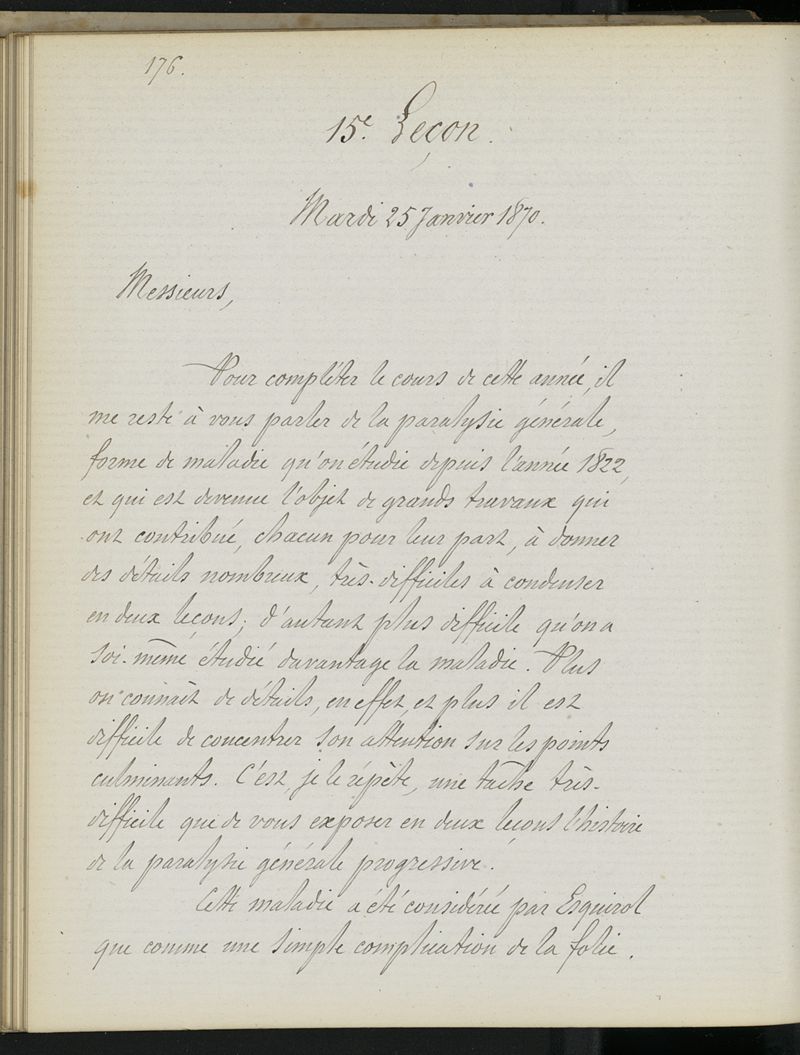 176.
15e. Leçon.
Mardi 25 Janvier 1870.
Messieurs,
Pour compléter le cours de cette année, il
me reste à vous parler de la paralysie générale,
forme de maladie qu'on étudie depuis l'année 1822,
et qui est devenue l'objet de grands travaux qui
ont contribué, chacun pour leur part, à donner
des détails nombreux, très-difficiles à condenser
en deux leçons; d'autant plus difficile qu'on a
soi-même étudié davantage la maladie. Plus
on connaît de détails, en effet, et plus il est
difficile de concentrer son attention sur les points
culminants. C'est, je le répète, une tâche très-
difficile que de vous exposer en deux leçons l'histoire
de la paralysie générale progressive.
Cette maladie a été considérée par Esquirol
que comme une simple complication de la folie.